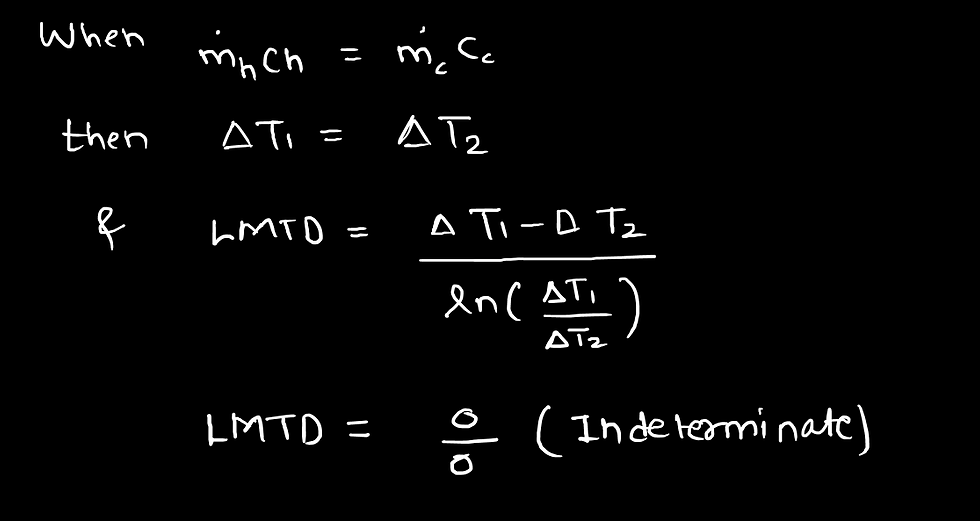 When ṁₕ Ch = ṁ꜀ C꜀
then ΔT₁ = ΔT₂
& LMTD = (ΔT₁ − ΔT₂) / ln(ΔT₁/ΔT₂)
LMTD = 0/0 (Indeterminate)